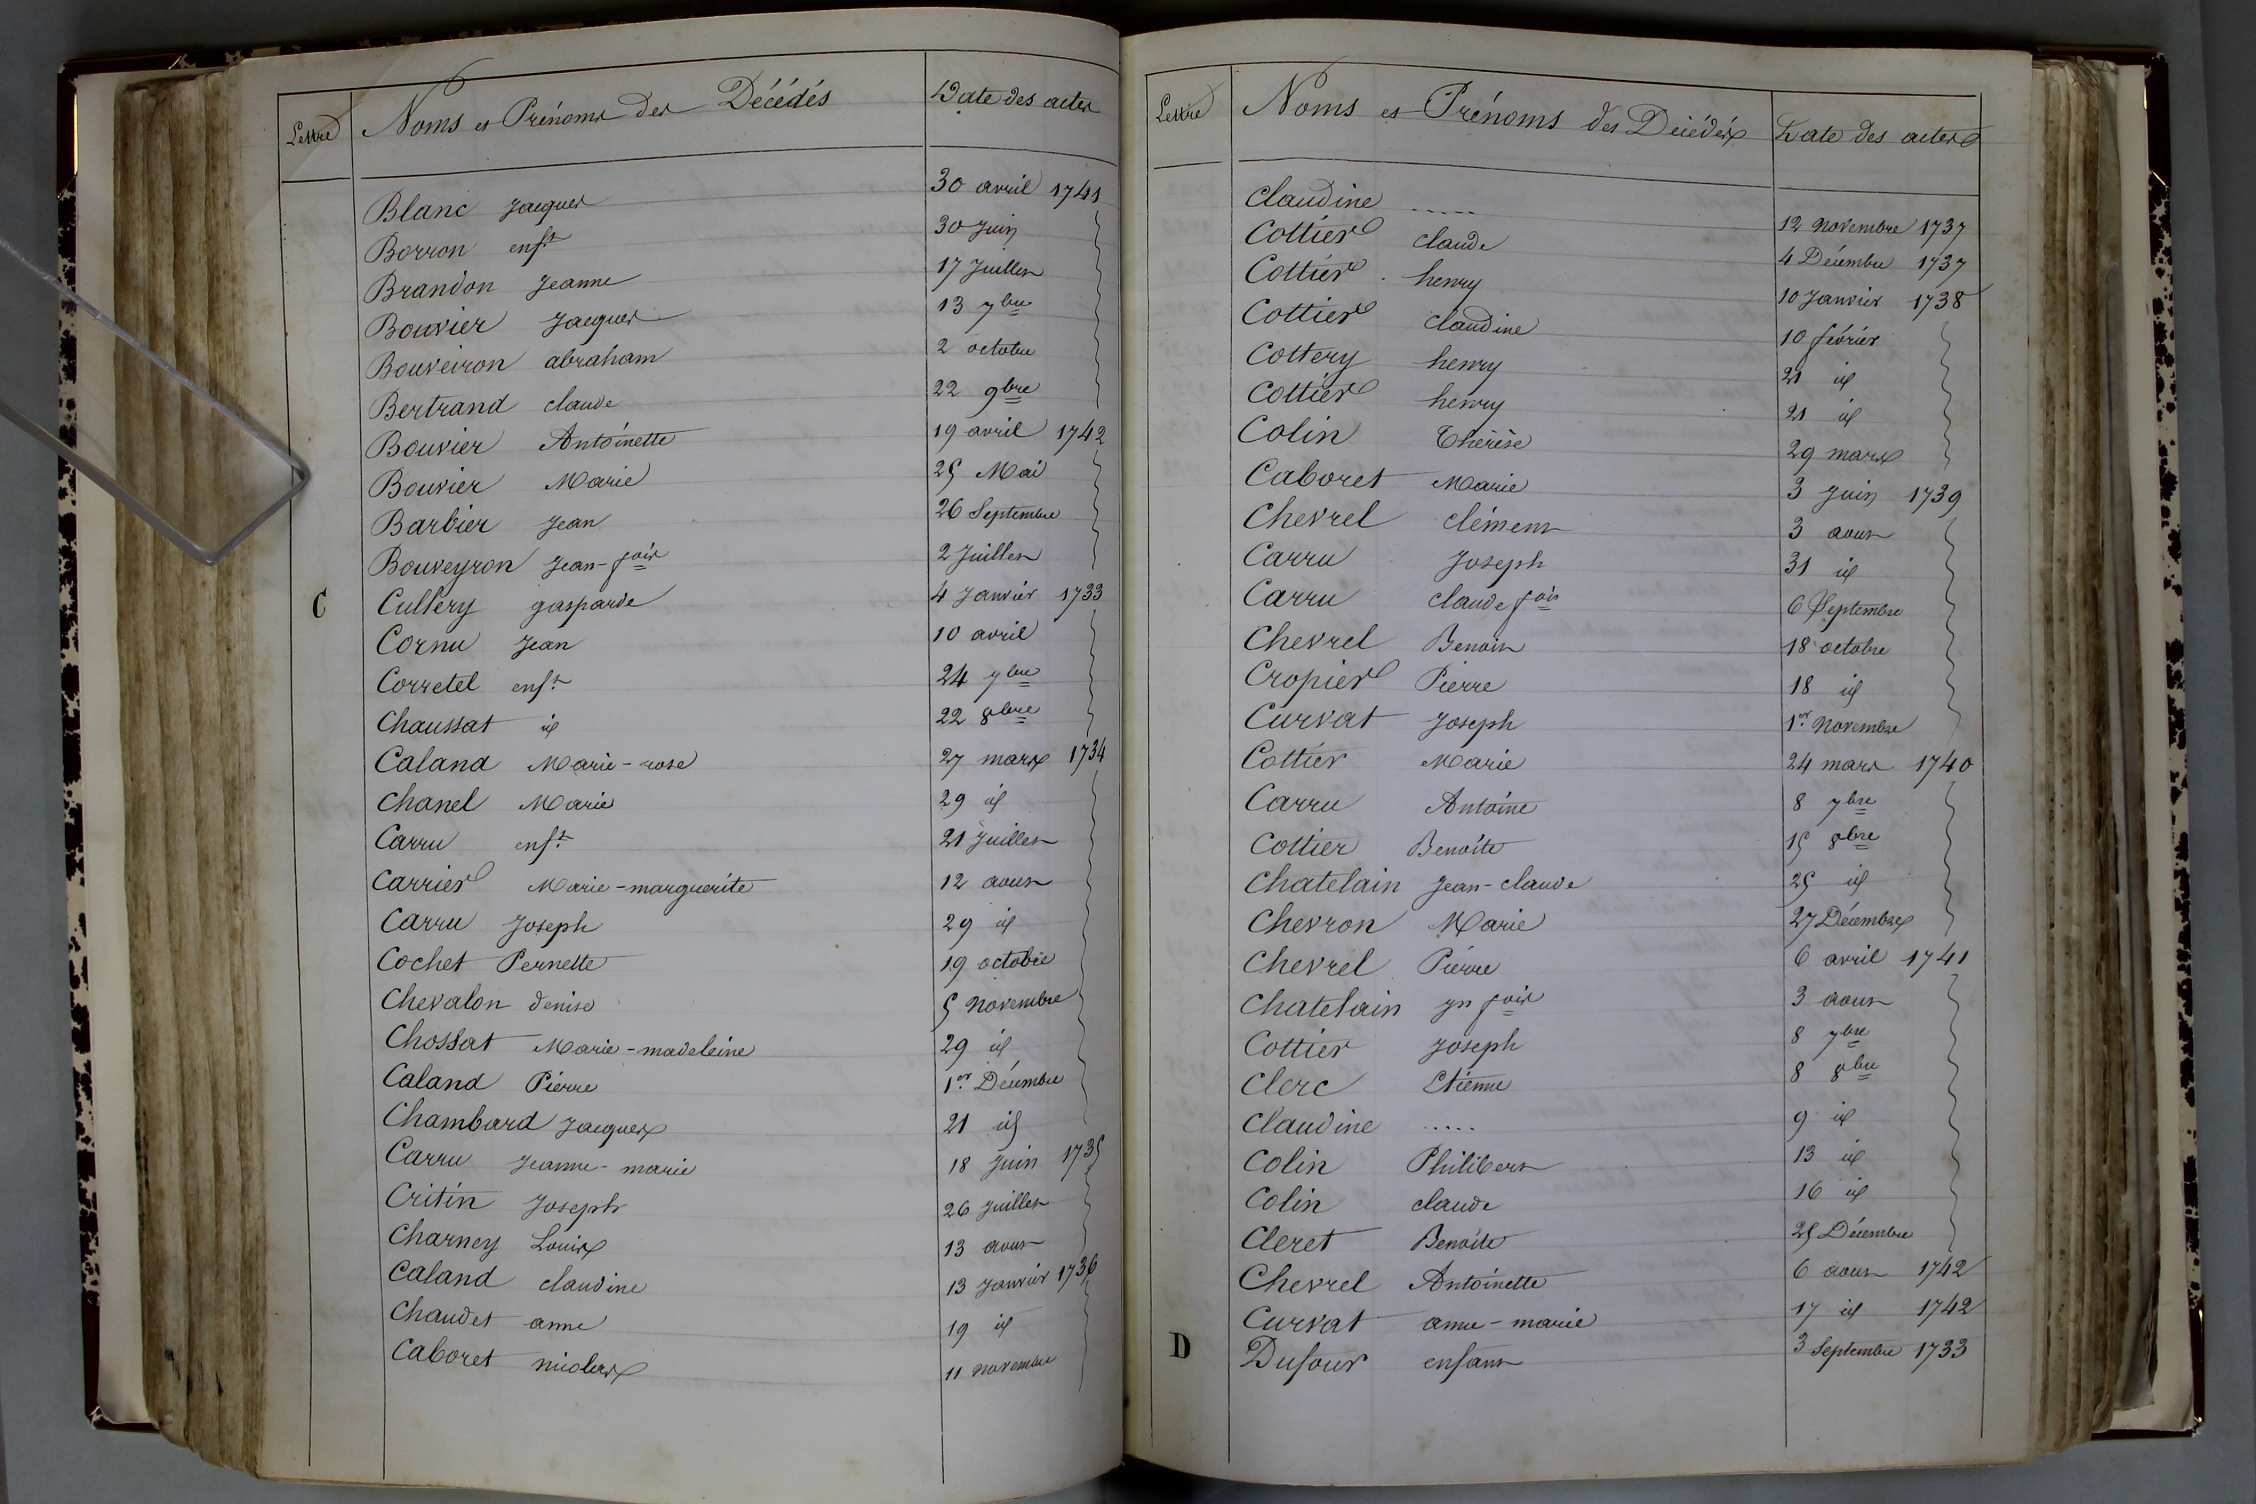 Lettre Noms et Prénoms des Décédés Date des actes
Blanc Jacques 30 avril 1741
Borron enft 30 Juin
Brandon Jeanne 17 Juillet
Bouvier Jacques 13 7bre
Bouveiron abraham 2 octobre
Bertrand claude 22 9bre
Bouvier Antoinette 19 avril 1742
Bouvier Marie 25 Mai
Barbier Jean 26 Septembre
Bouveyron Jean-fois 2 Juillet
C Cullery gasparde 4 Janvier 1733
Cornu Jean 10 avril
Corretel enft 24 7bre
Chaussat id 22 8bre
Caland Marie-rose 27 mars 1734
Chanel Marie 29 id
Carru enft 21 Juillet
Carrier Marie-marguerite 12 aout
Carru Joseph 29 id
Cochet Pernette 19 octobre
Chevalon denise 5 Novembre
Chossat Marie-madeleine 29 id
Caland Pierre 1er Décembre
Chambard Jacques 21 id
Carru Jeanne-marie 18 Juin 1735
Critin Joseph 26 Juillet
Charney Louis 13 aout
Caland claudine 13 Janvier 1736
Chaudet anne 19 id
Caboret nicolas 11 novembre
Lettre Noms et Prénoms des Décédés Date des actes
Claudine ..... 12 Novembre 1737
Cottier claude 4 Décembre 1737
Cottier henry 10 Janvier 1738
Cottier claudine 10 février
Cottery henry 21 id
Cottier henry 21 id
Colin Thérèse 29 mars
Caboret Marie 3 Juin 1739
Chevrel clément 3 aout
Carru Joseph 31 id
Carru claude fois 6 Septembre
Chevrel Benoit 18 octobre
Cropier Pierre 18 id
Curvat Joseph 1er Novembre
Cottier Marie 24 mars 1740
Carru Antoine 8 7bre
Cottier Benoite 15 8bre
Chatelain Jean-claude 25 id
Chevron Marie 27 Décembre
Chevrel Pierre 6 avril 1741
Chatelain jn fois 3 aout
Cottier Joseph 8 7bre
Clerc Etienne 8 8bre
Claudine ..... 9 id
Colin Philibert 13 id
Colin claude 16 id
Cleret Benoite 25 Décembre
Chevrel Antoinette 6 aout 1742
Curvat anne-marie 17 id 1742
D Dufour enfant 3 Septembre 1733